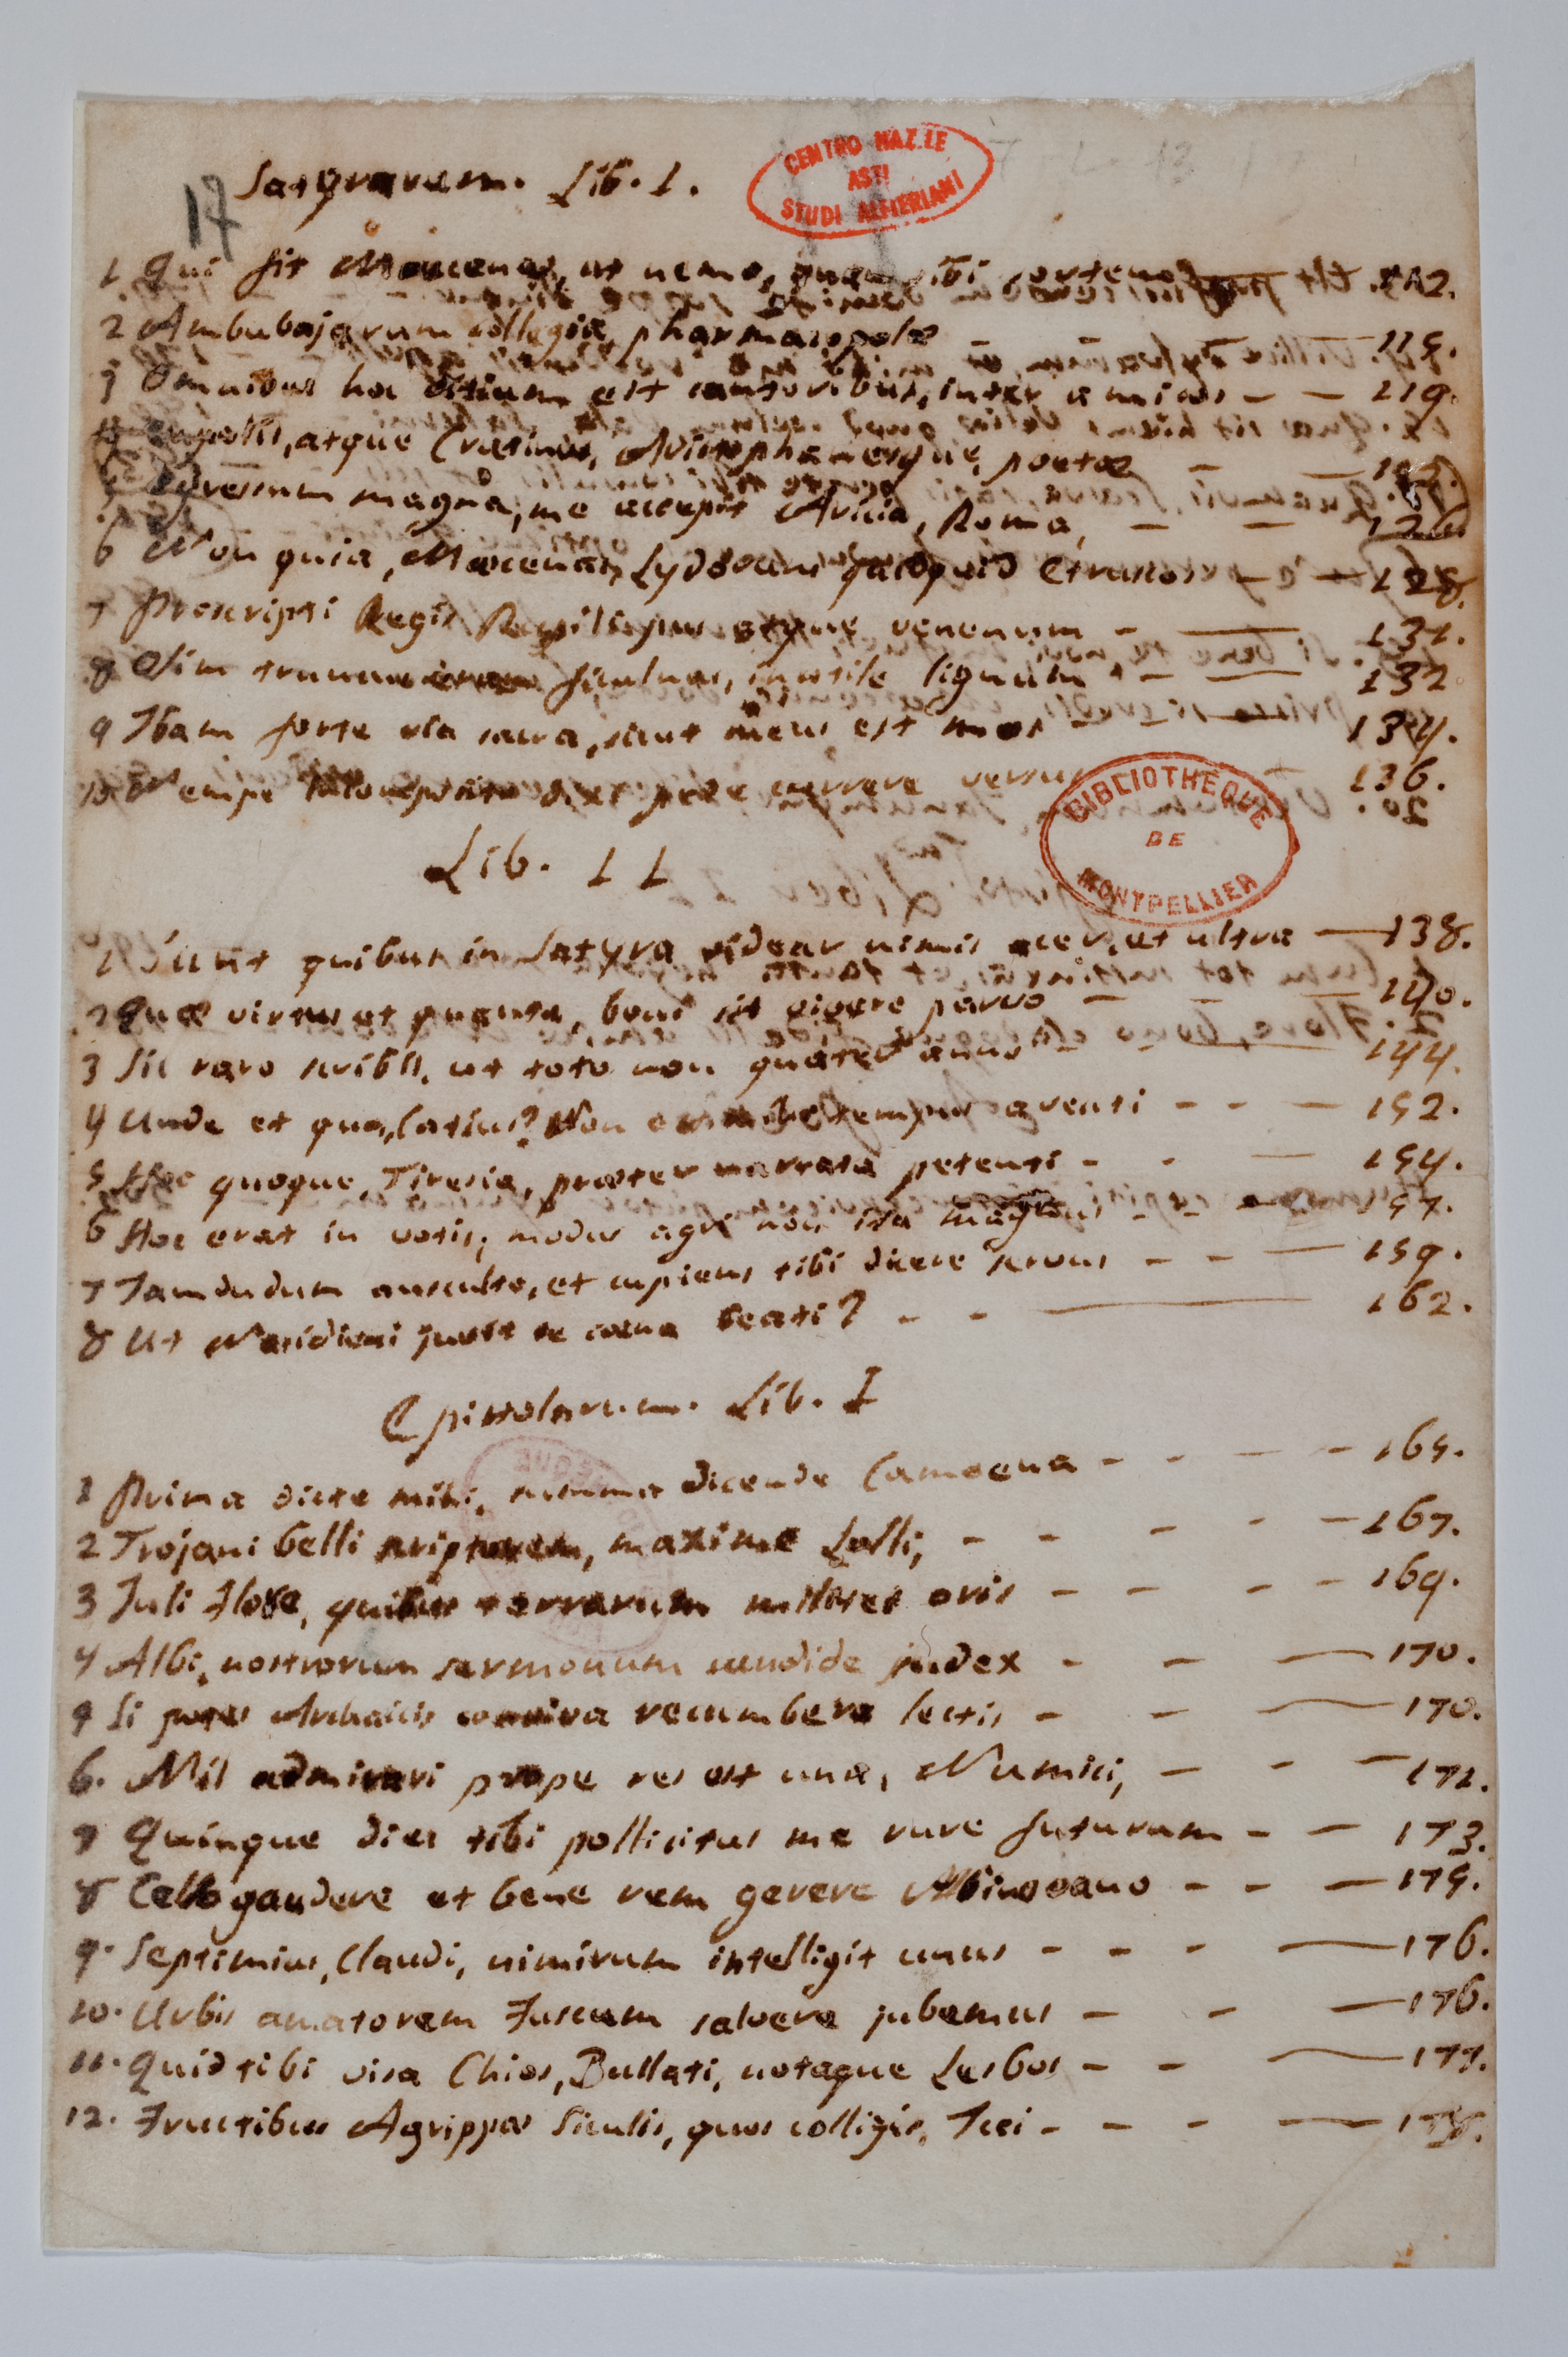 17
Satyrarum. Lib. 1.
CENTRO NAZ.LE
ASTI
STUDI ALFIERIANI
1 Qui fit Mæcenas, ut nemo, quam sibi sortem 112.
2 Ambubajarum collegia, pharmacopolæ - - 115.
3 Omnibus hoc vitium est cantoribus, inter amicos - - 119.
4 Eupolis, atque Cratinus, Aristophanesque, poetæ - -
5 Egressum magna, me accepit Aricia, Roma, - - 126
6 Non quia, Mæcenas, Lydorum quicquid Etruscos - - 128.
7 Proscripti Regis Rupili pus atque venenum - - 131.
8 Olim truncus eram ficulnus, inutile lignum - - 132
9 Ibam forte via sacra, sicut meus est mos - - 134.
10 Nempe incomposito dixi pede currere versus - 136.
BIBLIOTHEQUE
DE
MONTPELLIER
Lib. 11
1 Sunt quibus in Satyra videar nimis acer, et ultra - 138.
2 Quæ virtus et quanta, boni sit vivere parvo - - - 140.
3 Sic raro scribis, ut toto non quater anno - - - 144.
4 Unde et quo, Catius? Non est mihi tempus aventi - - - 152.
5 Hoc quoque, Tiresia, præter narrata petenti - - - 154.
6 Hoc erat in votis; modus agri non ita magnus - - - 157.
7 Jamdudum ausculto, et cupiens tibi dicere servus - - - 159.
8 Ut Nasidieni juvit te cœna beati? - - - 162.
Epistolarum. Lib. I
1 Prima dicte mihi, summa dicende Camoena - - - - 165.
2 Trojani belli scriptorem, maxime Lolli, - - - - - 167.
3 Juli Flore, quibus terrarum militet oris - - - - 169.
4 Albi, nostrorum sermonum candide judex - - - 170.
5 Si potes Archaicis conviva recumbere lectis - - - 170.
6. Nil admirari prope res est una, Numici, - - - 171.
7 Quinque dies tibi pollicitus me rure futurum - - 173.
8 Celso gaudere et bene rem gerere Albinovano - - - 175.
9. Septimius, Claudi, nimirum intelligit unus - - - - 176.
10. Urbis amatorem Fuscum salvere jubemus - - - 176.
11. Quid tibi visa Chios, Bullati, notaque Lesbos - - - 177.
12. Fructibus Agrippæ Siculis, quos colligis, Icci - - - - 178.